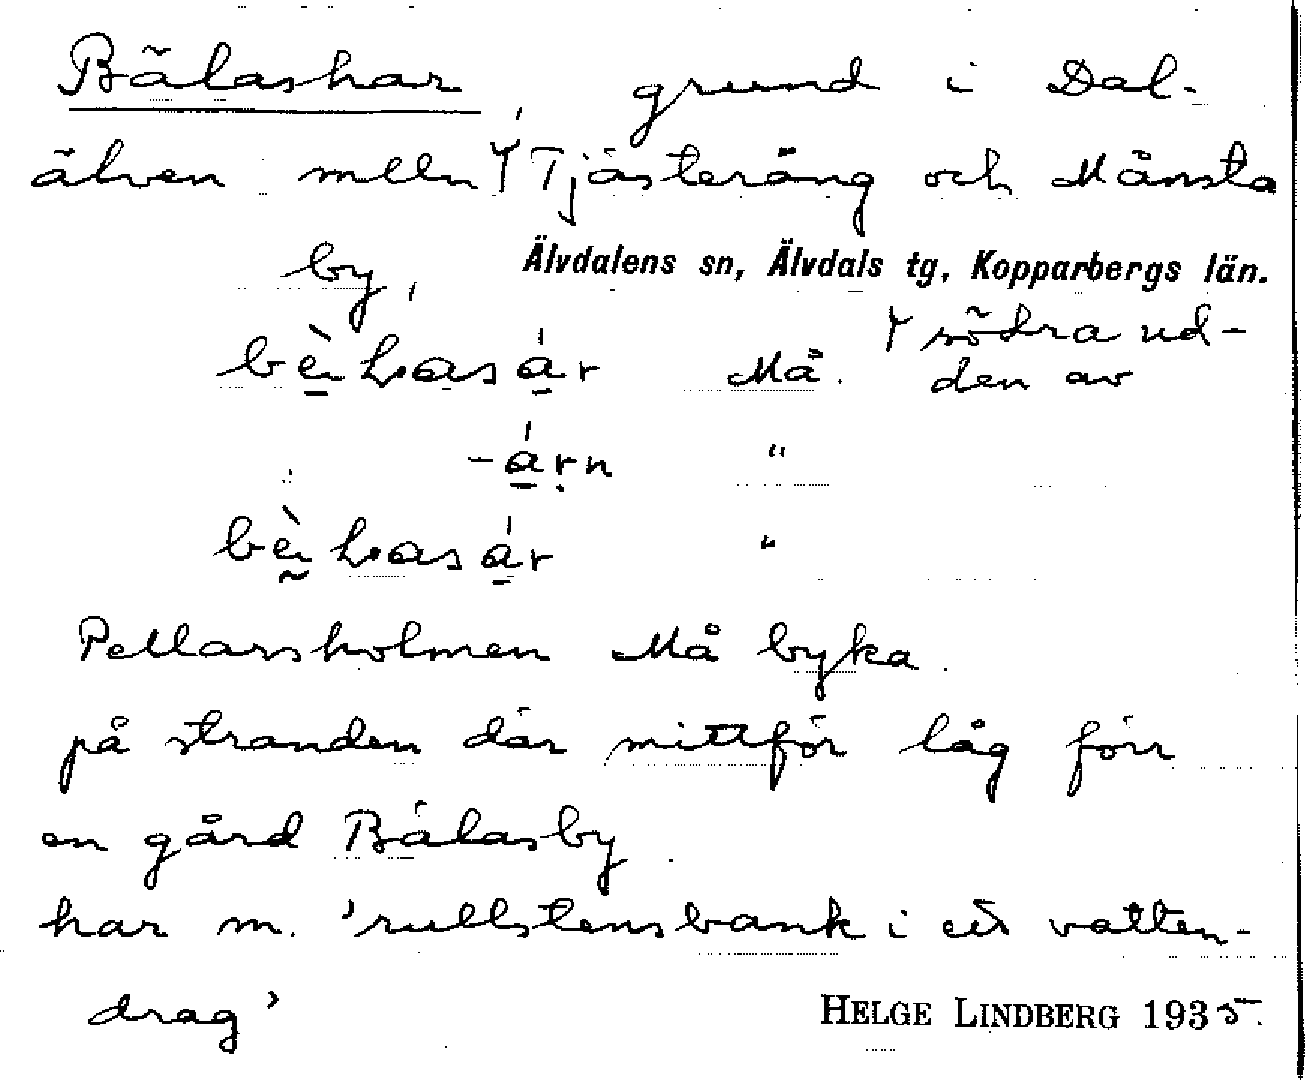 Bälashar, grund i Dal-
älven melln Tjästeräng och Månsta
by,
Älvdalens sn, Älvdals tg, Kopparbergs län.
södra ud-
Må. den av
-á̱rṇ "
"
Pellarsholmen Må byka.
på stranden där mittför låg förr
en gård Bälasby.
har m. 'rullstensbank i ett vatten-
drag'
HELGE LINDBERG 1935.